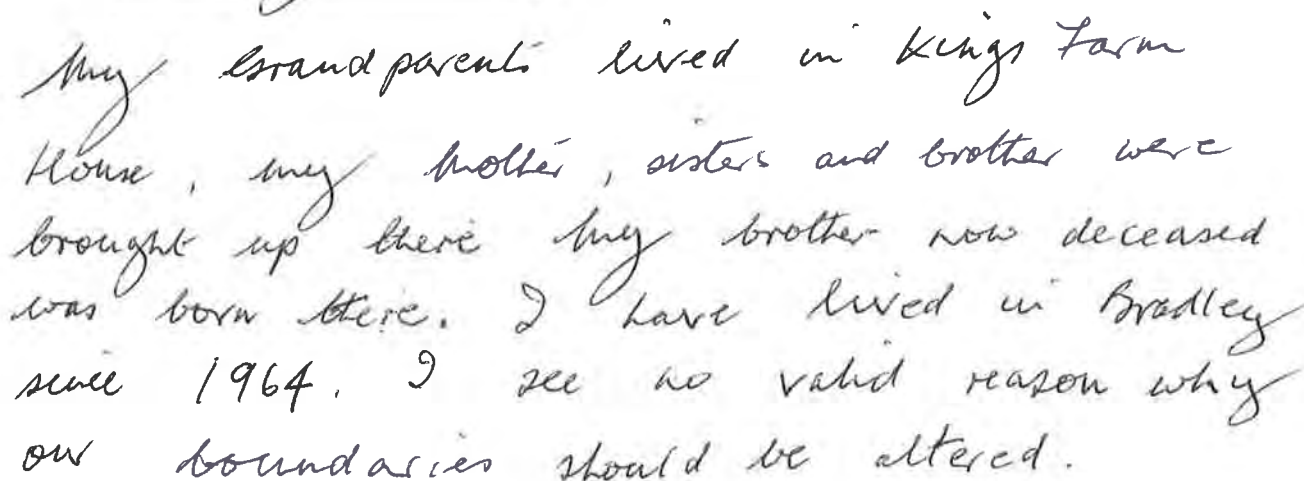 My Grandparents lived in Kings Farm
House, my Mother, sisters and brother were
brought up there My brother now deceased
was born there. I have lived in Bradley
since 1964. I see no valid reason why
our boundaries should be altered.